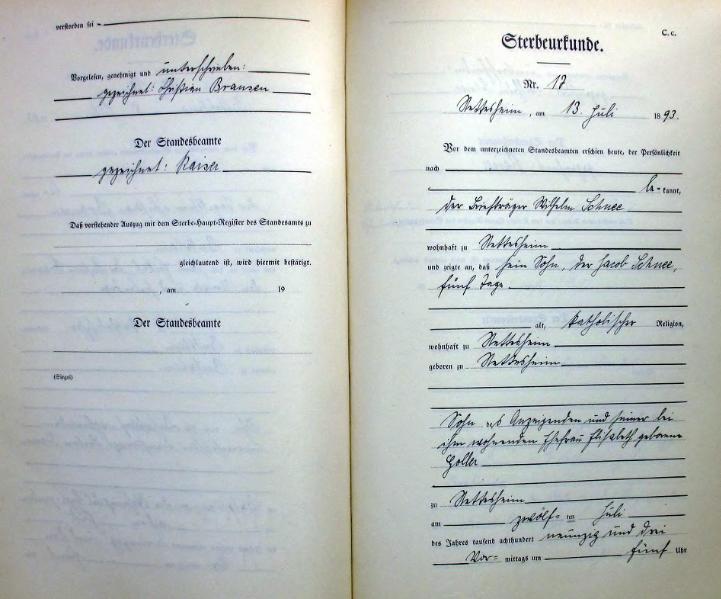 verstorben sei –
Vorgelesen, genehmigt und unterschrieben:
gezeichnet: Christian Bransen
Der Standesbeamte
gezeichnet: Kaiser
Daß vorstehender Auszug mit dem Sterbe-Haupt-Register des Standesamts zu
gleichlautend ist, wird hiermit bestätigt.
, am 19
Der Standesbeamte
(Siegel)
C. c.
Sterbeurkunde.
Nr. 17
Nettesheim, am 13. Juli 1893.
Vor dem unterzeichneten Standesbeamten erschien heute, der Persönlichkeit
nach
be- kannt,
der Briefträger Wilhelm Schnee
wohnhaft zu Nettesheim
und zeigte an, daß sein Sohn, der Jacob Schnee,
fünf Tage
alt, katholischer Religion,
wohnhaft zu Nettesheim
geboren zu Nettesheim
Sohn des Anzeigenden und seiner bei
ihm wohnenden Ehefrau Elisabeth geborene
Holler
zu Nettesheim
am zwölf- ten Juli
des Jahres tausend achthundert neunzig und drei
Vor- mittags um fünf Uhr